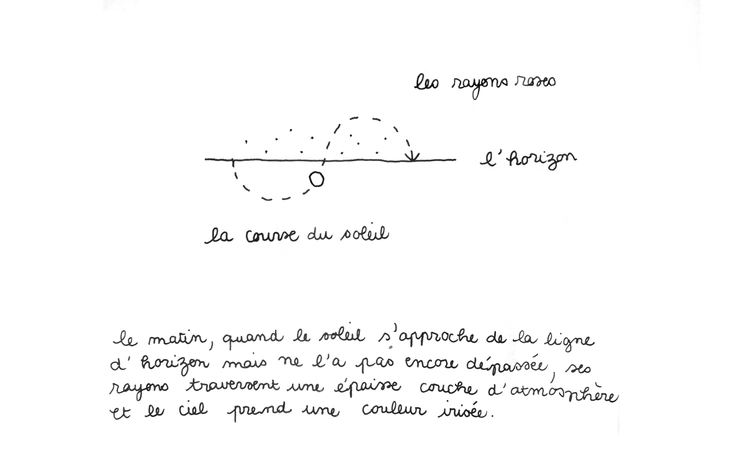 les rayons roses
l'horizon
la course du soleil
le matin, quand le soleil s'approche de la ligne
d'horizon mais ne l'a pas encore dépassée, ses
rayons traversent une épaisse couche d'atmosphère
et le ciel prend une couleur irisée.